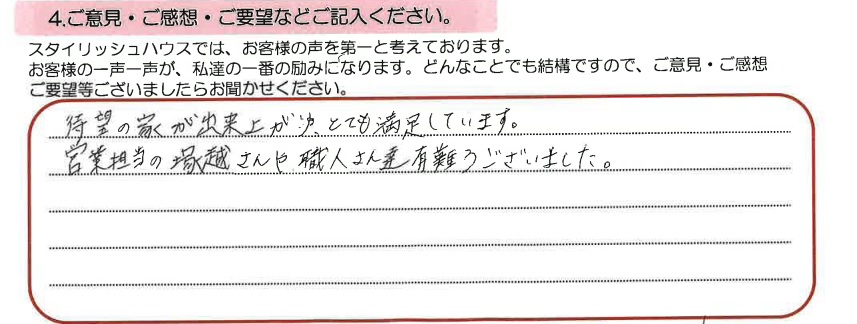 4.ご意見・ご感想・ご要望などご記入ください。
スタイリッシュハウスでは、お客様の声を第一と考えております。
お客様の一声一声が、私達の一番の励みになります。どんなことでも結構ですので、ご意見・ご感想
ご要望等ございましたらお聞かせください。
待望の家が出来上がり、とても満足しています。
営業担当の塚越さんや職人さん達有難うございました。